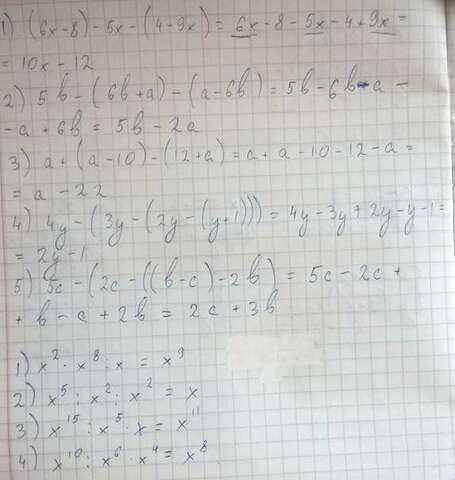 1) (6x-8)-5x-(4-9x)=6x-8-5x-4+9x=
=10x-12
2) 5b-(6b+a)-(a-6b)=5b-6b-a-
-a+6b=5b-2a
3) a+(a-10)-(12+a)=a+a-10-12-a=
=a-22
4) 4y-(3y-(2y-(y+1)))=4y-3y+2y-y-1=
=2y-1
5) 5c-(2c-((b-c)-2b)=5c-2c+
+b-c+2b=2c+3b
1) x²·x⁸:x=x⁹
2) x⁵:x²:x²=x
3) x¹⁵:x⁵·x=x¹¹
4) x¹⁰:x⁶·x⁴=x⁸